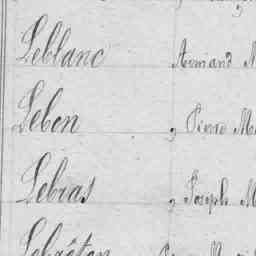 Leblanc Armand
Leben Pierre
Lebras Joseph
Lebréton